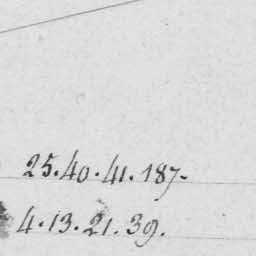 25.40.41.187.
4.13.21.39.